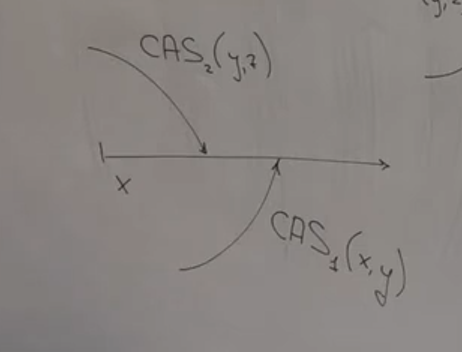 CAS₂(y,z)
x
CAS₁(x,y)